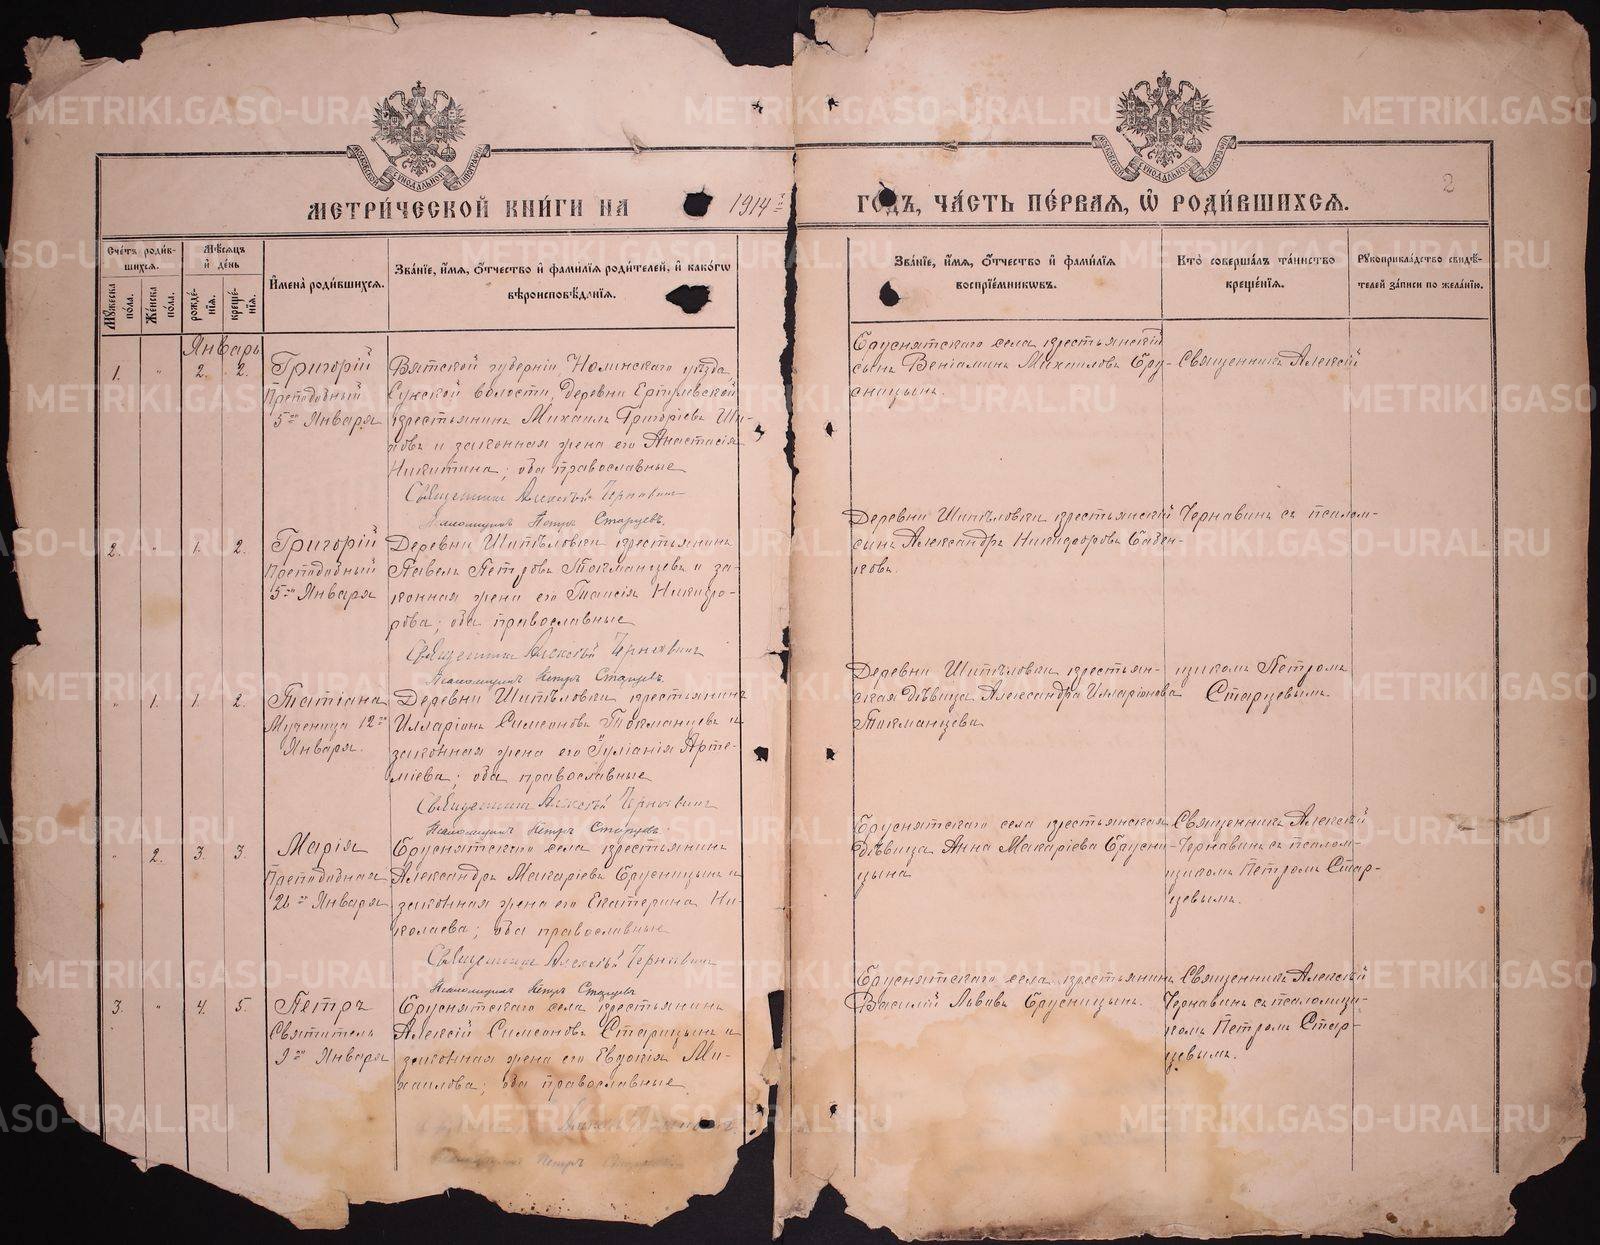 МЕТРИ́ЧЕСКОЙ КНИ́ГИ НА 1914 ГОДЪ, ЧА́СТЬ ПЕ́РВАЯ, Ѡ РОДИ́ВШИХСЯ.
2
Сче́тъ роди́в-
шихся.
Мѣ́сяцъ
и де́нь
Му́жеска по́ла.
Же́нска по́ла.
рожде́-
нїя.
креще́-
нїя.
Имена̀ роди́вшихся.
Зва́нїе, и́мя, о́тчество и фами́лїя роди́телей, и како́гѡ
вѣроисповѣ́данїя.
Зва́нїе, и́мя, о́тчество и фами́лїя
воспрїе́мниковъ.
Кто̀ соверша́лъ та́инство
креще́нїя.
Рукоприкла́дство свидѣ́-
телей за́писи по жела́нїю.
Январь
1. " 2. 2.
Григорій
Преподобный
5го Января
Вятской губерніи, Нолинскаго уѣзда,
Сунской волости, Деревни
крестьянинъ Михаилъ Григоріевъ
и законная жена его Анастасія
Никитина; оба православные
Священникъ Алексѣй Чернавинъ
Псаломщикъ Петръ Старцевъ.
Бруснятскаго села крестьянскій
сынъ Веніаминъ Михаиловъ Бру-
сницынъ.
Священникъ Алексій
2. " 1. 2.
Григорій
Преподобный
5го Января
Деревни Шипѣловки крестьянинъ
Павелъ Петровъ Токманцевъ и за-
конная жена его Таисія Никифо-
рова; оба православные
Священникъ Алексѣй Чернавинъ
Псаломщикъ Петръ Старцевъ.
Деревни Шипѣловки крестьянскій
сынъ Александръ Никифоровъ
ковъ.
Чернавинъ съ псалом-
" 1. 1. 2.
Татіана
Мученица 12го
Января.
Деревни Шипѣловки крестьянинъ
Илларіонъ Симеоновъ Токманцевъ и
законная жена его Іуліанія Арте-
міева; оба православные
Священникъ Алексѣй Чернавинъ
Псаломщикъ Петръ Старцевъ.
Деревни Шипѣловки крестьян-
ская дѣвица Александра Илларіонова
Токманцева
щикомъ Петромъ
Старцевымъ.
" 2. 3. 3.
Марія
Преподобная
26го Января
Бруснятскаго села крестьянинъ
Александръ Макаріевъ Брусницынъ и
законная жена его Екатерина Ни-
колаева; оба православные
Священникъ Алексѣй Чернавинъ
Псаломщикъ Петръ Старцевъ
Бруснятскаго села крестьянская
дѣвица Анна Макаріева Брусни-
цына
Священникъ Алексѣй
Чернавинъ съ псалом-
щикомъ Петромъ Стар-
цевымъ.
3. " 4. 5.
Петръ
Святитель
9го Января
Бруснятскаго села крестьянинъ
Алексій Симеоновъ Старицынъ и
законная жена его Евдокія Ми-
хаилова; оба православные
Псаломщикъ Петръ
Бруснятскаго села крестьянинъ
Василій Львовъ Брусницынъ.
Священникъ Алексѣй
Чернавинъ съ псаломщи-
комъ Петромъ Стар-
цевымъ.
METRIKI.GASO-URAL.RU